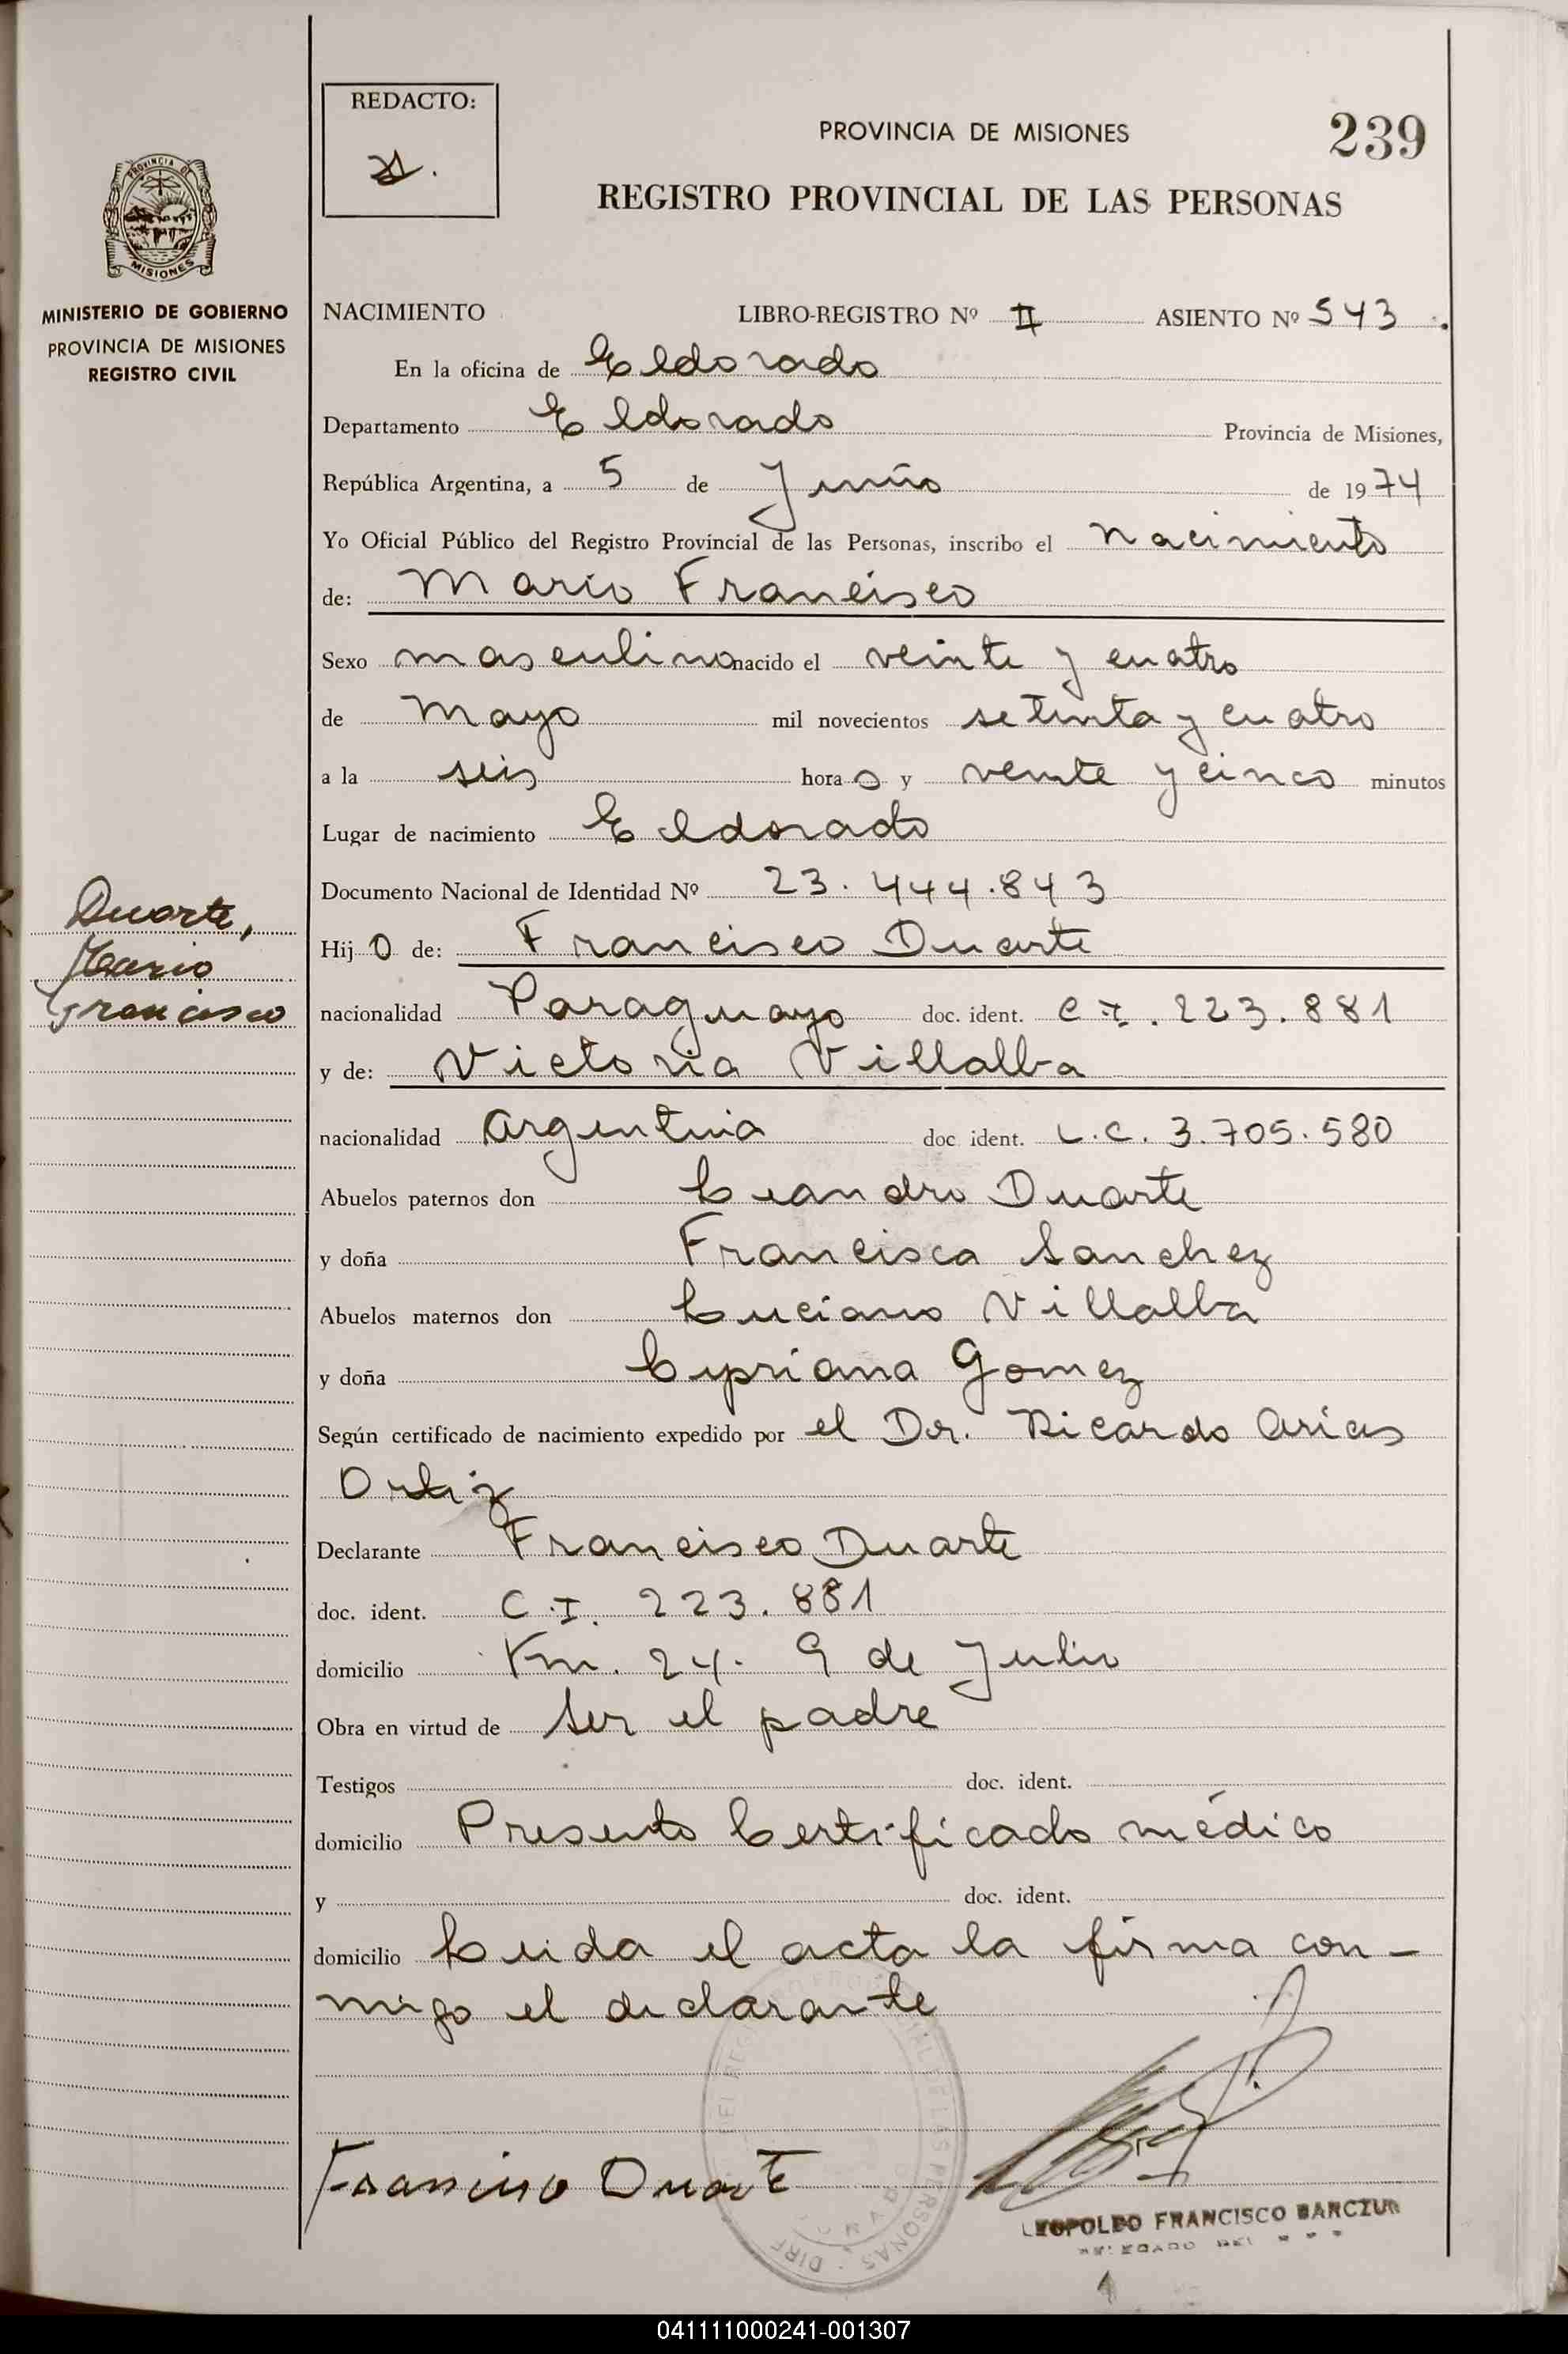 REDACTO:
PROVINCIA DE MISIONES
239
REGISTRO PROVINCIAL DE LAS PERSONAS
PROVINCIA DE
MISIONES
MINISTERIO DE GOBIERNO
PROVINCIA DE MISIONES
REGISTRO CIVIL
NACIMIENTO LIBRO-REGISTRO Nº II ASIENTO Nº 543.
En la oficina de Eldorado
Departamento Eldorado Provincia de Misiones,
República Argentina, a 5 de Junio de 1974
Yo Oficial Público del Registro Provincial de las Personas, inscribo el nacimiento
de: Mario Francisco
Sexo masculino nacido el veinte y cuatro
de mayo mil novecientos setenta y cuatro
a la seis hora s y veinte y cinco minutos
Lugar de nacimiento Eldorado
Documento Nacional de Identidad Nº 23.444.843
Duarte,
Mario
Francisco
Hij o de: Francisco Duarte
nacionalidad Paraguayo doc. ident. C I. 223.881
y de: Victoria Villalba
nacionalidad argentina doc ident. L.C. 3.705.580
Abuelos paternos don Leandro Duarte
y doña Francisca Sanchez
Abuelos maternos don Luciano Villalba
y doña Cipriana Gomez
Según certificado de nacimiento expedido por el Dr. Ricardo Arias
Ortiz
Declarante Francisco Duarte
doc. ident. C.I. 223.881
domicilio Km. 24. 9 de Julio
Obra en virtud de ser el padre
Testigos doc. ident.
domicilio Presento Certificado médico
y doc. ident.
domicilio Leida el acta la firma con-
migo el declarante
Francisco Duarte
LEOPOLDO FRANCISCO BARCZUK
041111000241-001307